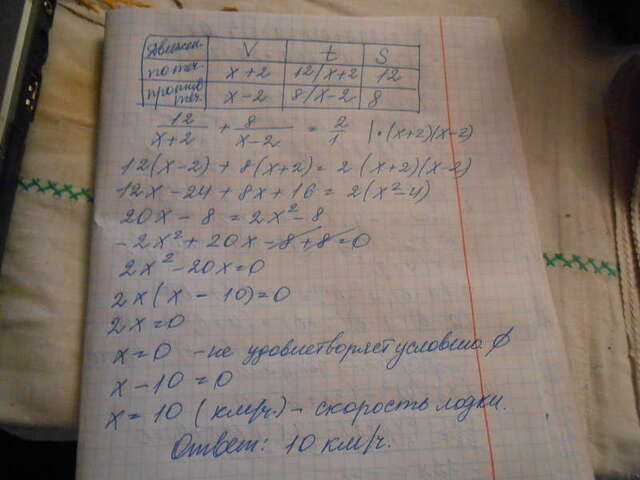 движен. V t S
по теч. x+2 12/x+2 12
против теч. x-2 8/x-2 8
12/x+2 + 8/x-2 = 2/1 |·(x+2)(x-2)
12(x-2) + 8(x+2) = 2(x+2)(x-2)
12x - 24 + 8x + 16 = 2(x²-4)
20x - 8 = 2x² - 8
-2x² + 20x - 8 + 8 = 0
2x² - 20x = 0
2x(x - 10) = 0
2x = 0
x = 0 - не удовлетворяет условию ∅
x - 10 = 0
x = 10 (км/ч.) - скорость лодки.
Ответ: 10 км/ч.